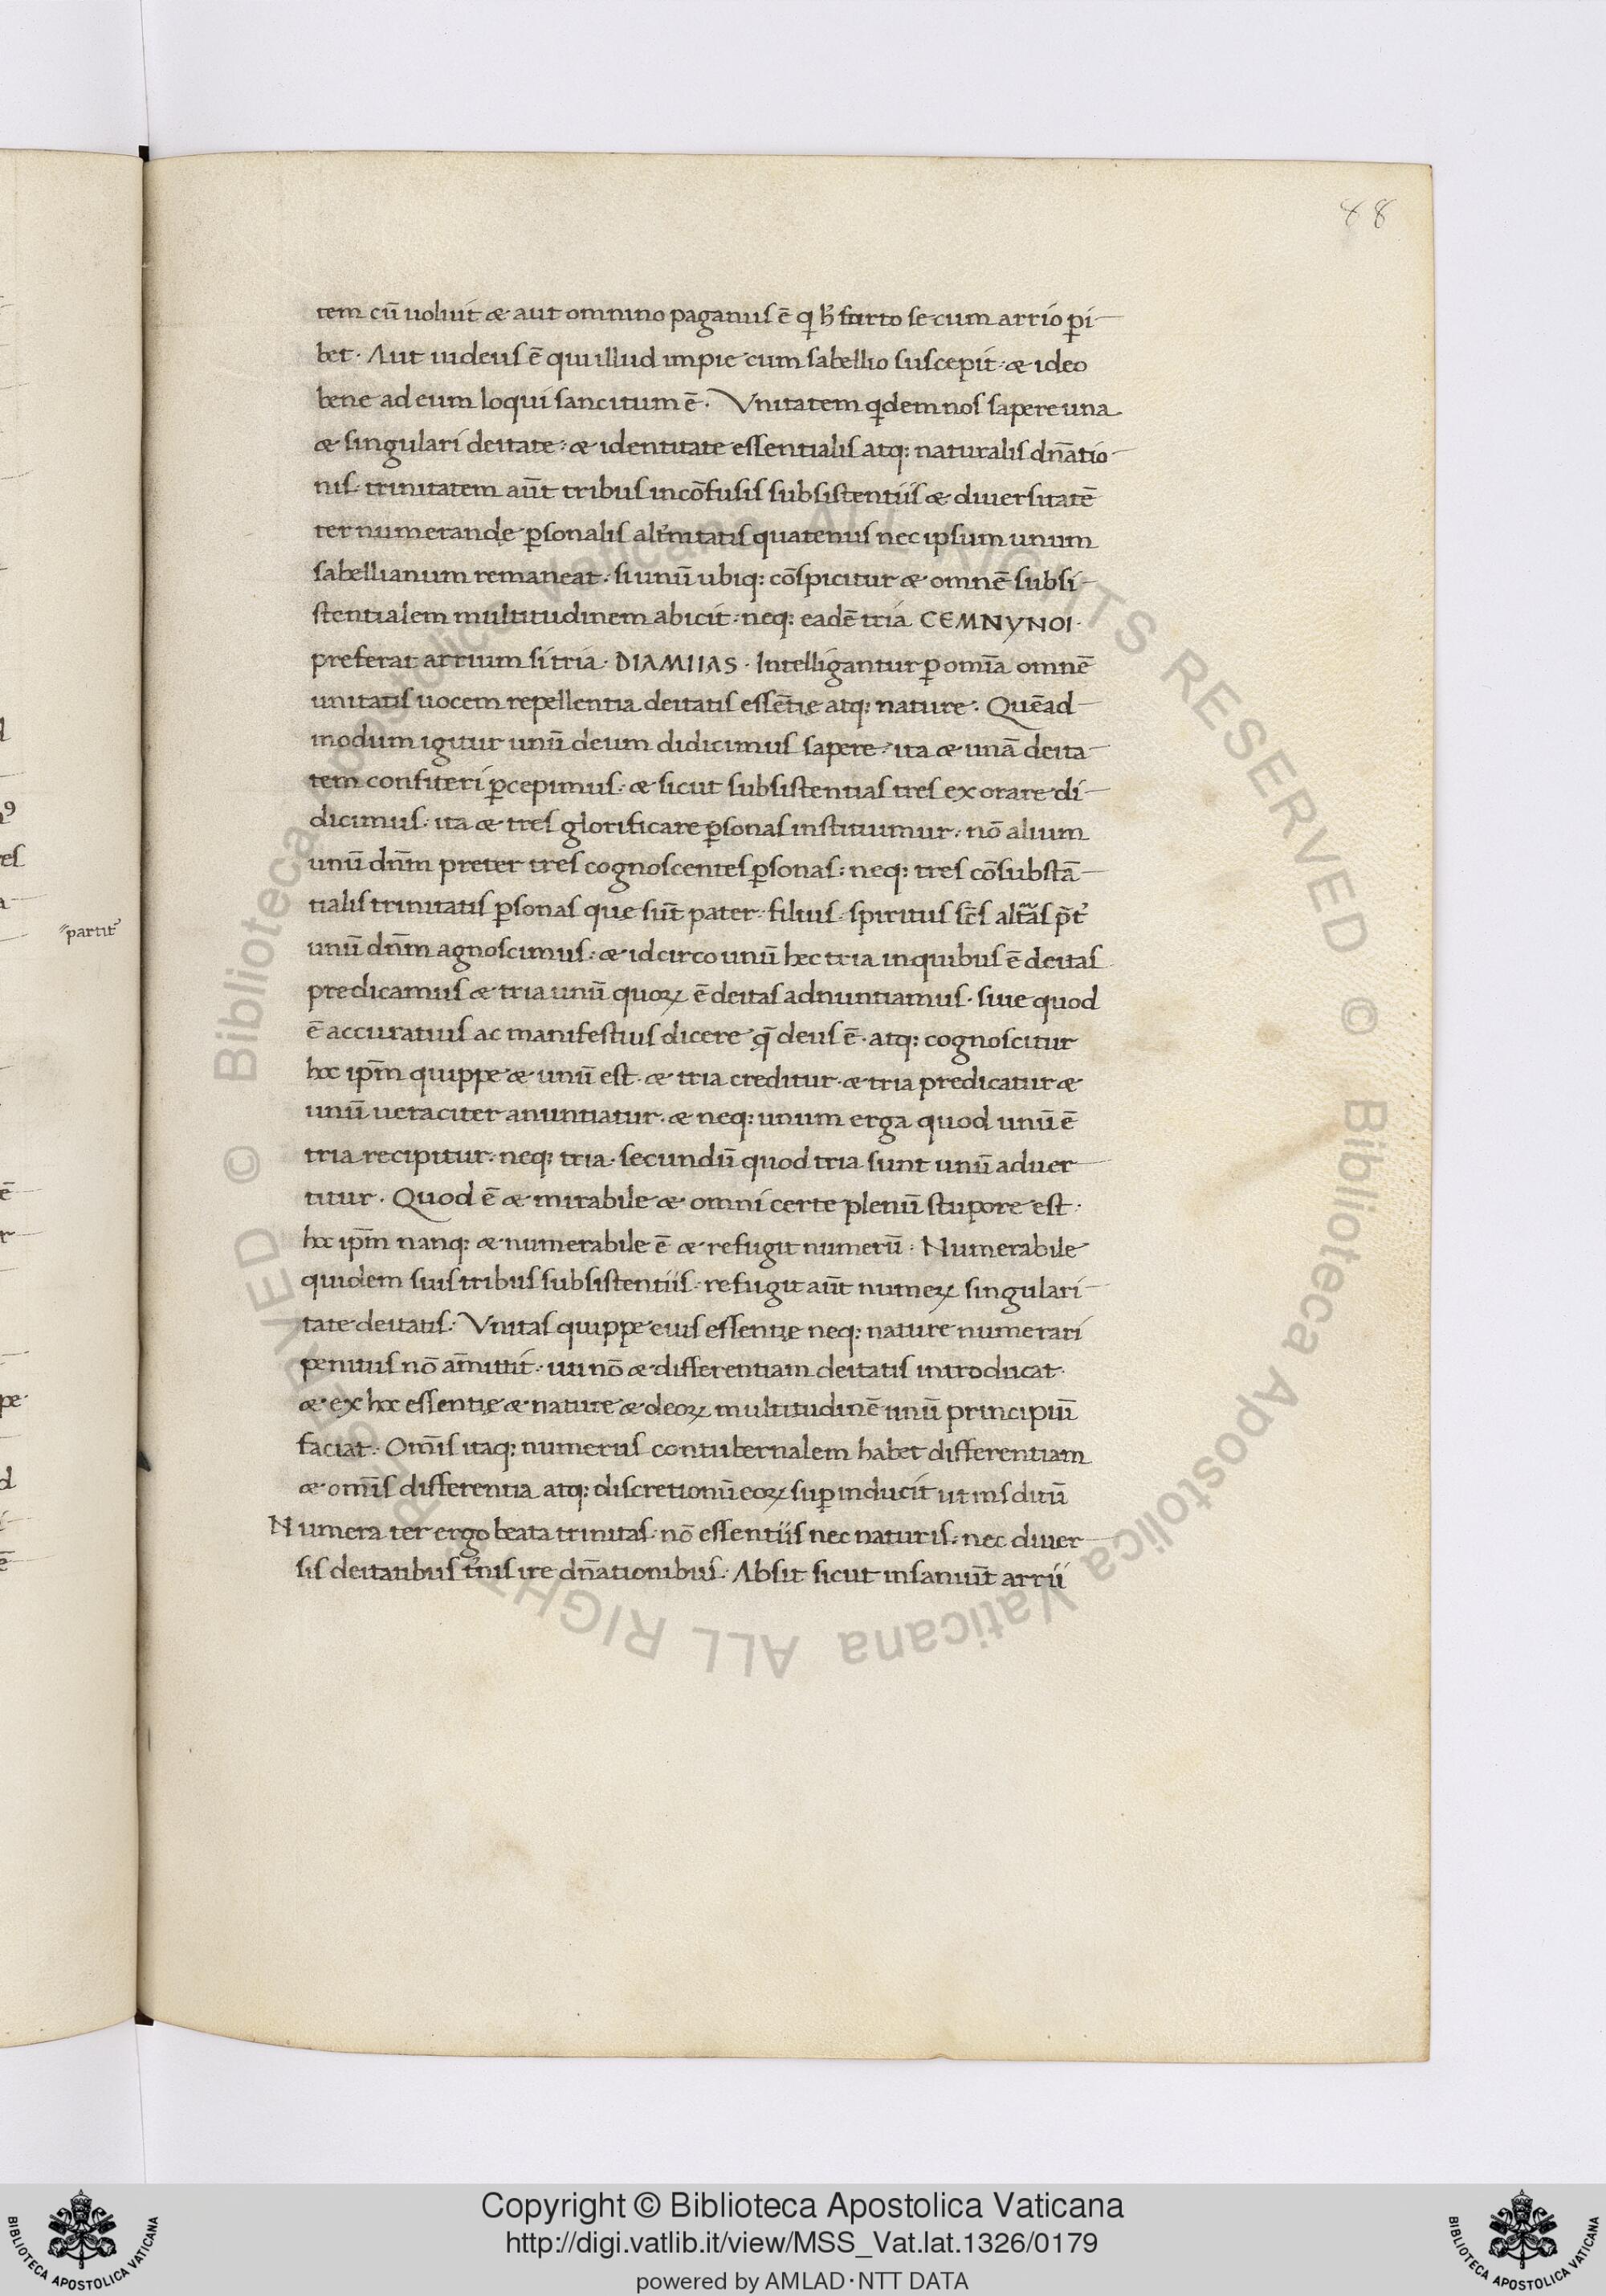 88
tem cū uoluit æ aut omnino paganus ē qi h̄ furto se cum arrio ꝑi
bet · Aut iudeus ē qui illud impie cum sabellio suscepit · æ ideo
bene ad eum loqui sancitum ē · Vnitatem qidem nos sapere una
æ singulari deitate · æ identitate essentialis atq: naturalis dn̄atio
nis · trinitatem aūt tribus incōfusis subsistentiis æ diuersitatē
ter numerandę ꝑsonalis alt̄nitatis quatenus nec ipsum unum
sabellianum remaneat · si unū ubiq: cōspicitur æ omnē subsi
stentialem multitudinem abicit · neq: eadē tria CEMNYNOI ·
preferat arrium si tria · DIAMIIAS · Intelligantur ꝑ om̄ia omnē
unitatis uocem repellentia deitatis essētię atq: nature · Quēad
modum igitur unū deum didicimus sapere · ita æ unā deita
tem confiteri ꝑcepimus · æ sicut subsistentias tres exorare di
dicimus · ita æ tres glorificare ꝑsonas instituimur · nō alium
unū dn̄m preter tres cognoscentes ꝑsonas · neq: tres cōsubstā
tialis trinitatis ꝑsonas que sūt pater · filius · spiritus sc̄s
unū dn̄m agnoscimus · æ idcirco unū hec tria in quibus ē deitas
predicamus æ tria unū quoꝝ ē deitas adnuntiamus · siue quod
ē accuratius ac manifestius dicere q̄ deus ē · atq: cognoscitur
hoc ip̄m quippe æ unū est · æ tria creditur · æ tria predicatur æ
unū ueraciter anuntiatur · æ neq: unum erga quod unū ē
tria recipitur · neq: tria · secundū quod tria sunt unū aduer
titur · Quod ē æ mirabile æ omni certe plenū stupore est ·
hoc ip̄m nanq: æ numerabile ē æ refugit numerū · Numerabile
quidem suis tribus subsistentiis · refugit aūt numeꝝ singulari
tate deitatis · Vnitas quippe eius essentię neq: nature numerari
penitus nō am̄ittit · uti nō æ differentiam deitatis introducat ·
æ ex hoc essentię æ nature æ deoꝝ multitudinē unū principiū
faciat · Om̄is itaq: numerus contubernalem habet differentiam
æ om̄is differentia atq: discretionū eoꝝ suꝑinducit ut insditū
Numera ter ergo beata trinitas · nō essentiis nec naturis · nec diuer
sis deitatibus t̄nis ire dn̄ationibus · Absit sicut insaniūt arrii
partit᷒
Copyright © Biblioteca Apostolica Vaticana
http://digi.vatlib.it/view/MSS_Vat.lat.1326/0179
powered by AMLAD·NTT DATA
BIBLIOTECA APOSTOLICA VATICANA
BIBLIOTECA APOSTOLICA VATICANA
© Biblioteca Apostolica Vaticana ALL RIGHTS RESERVED © Biblioteca Apostolica Vaticana ALL RIGHTS RESERVED